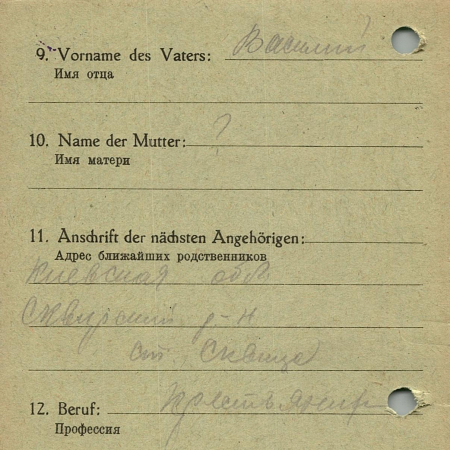 9. Vorname des Vaters: Василий
Имя отца
10. Name der Mutter: ?
Имя матери
11. Anschrift der nächsten Angehörigen:
Адрес ближайших родственников
Киевская обл.
Сквирский р-н
ст. Сквира
12. Beruf: крестьянин
Профессия